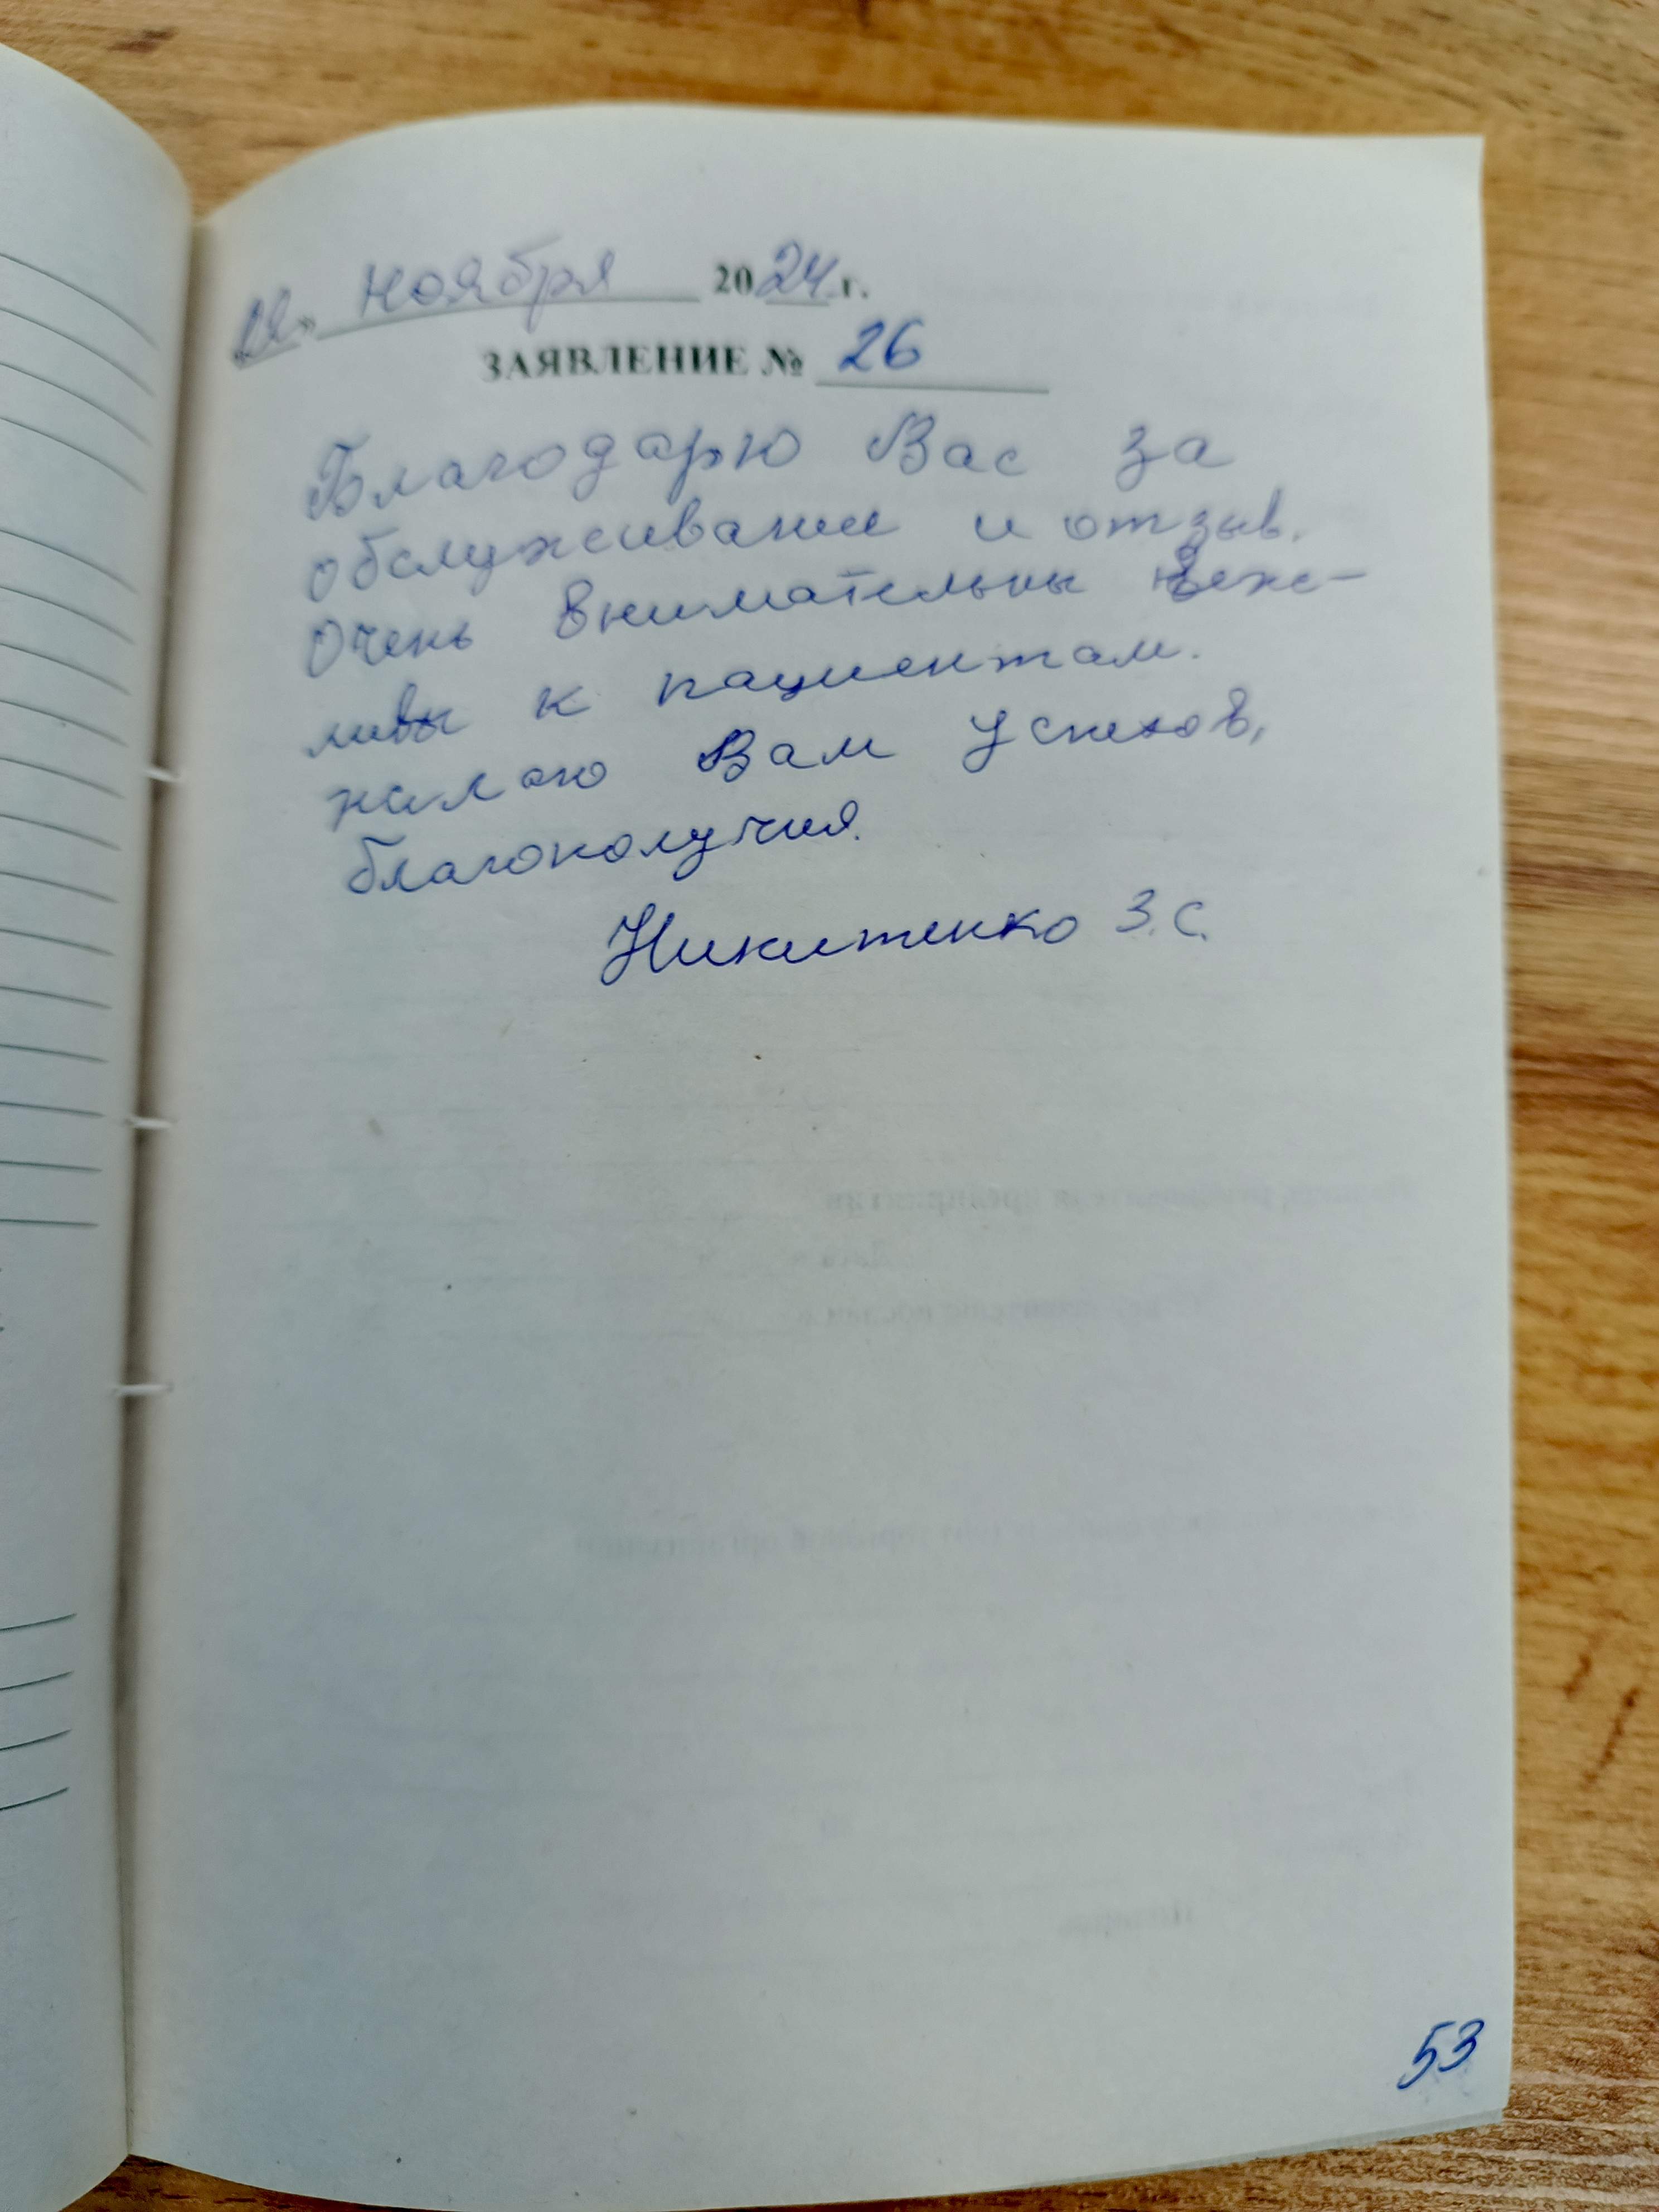 ноября 2024 г.
ЗАЯВЛЕНИЕ № 26
Благодарю Вас за
обслуживание и отзыв.
Очень внимательны веж-
ливы к пациентам.
желаю Вам успехов,
благополучия.
Никитенко З.С.
53